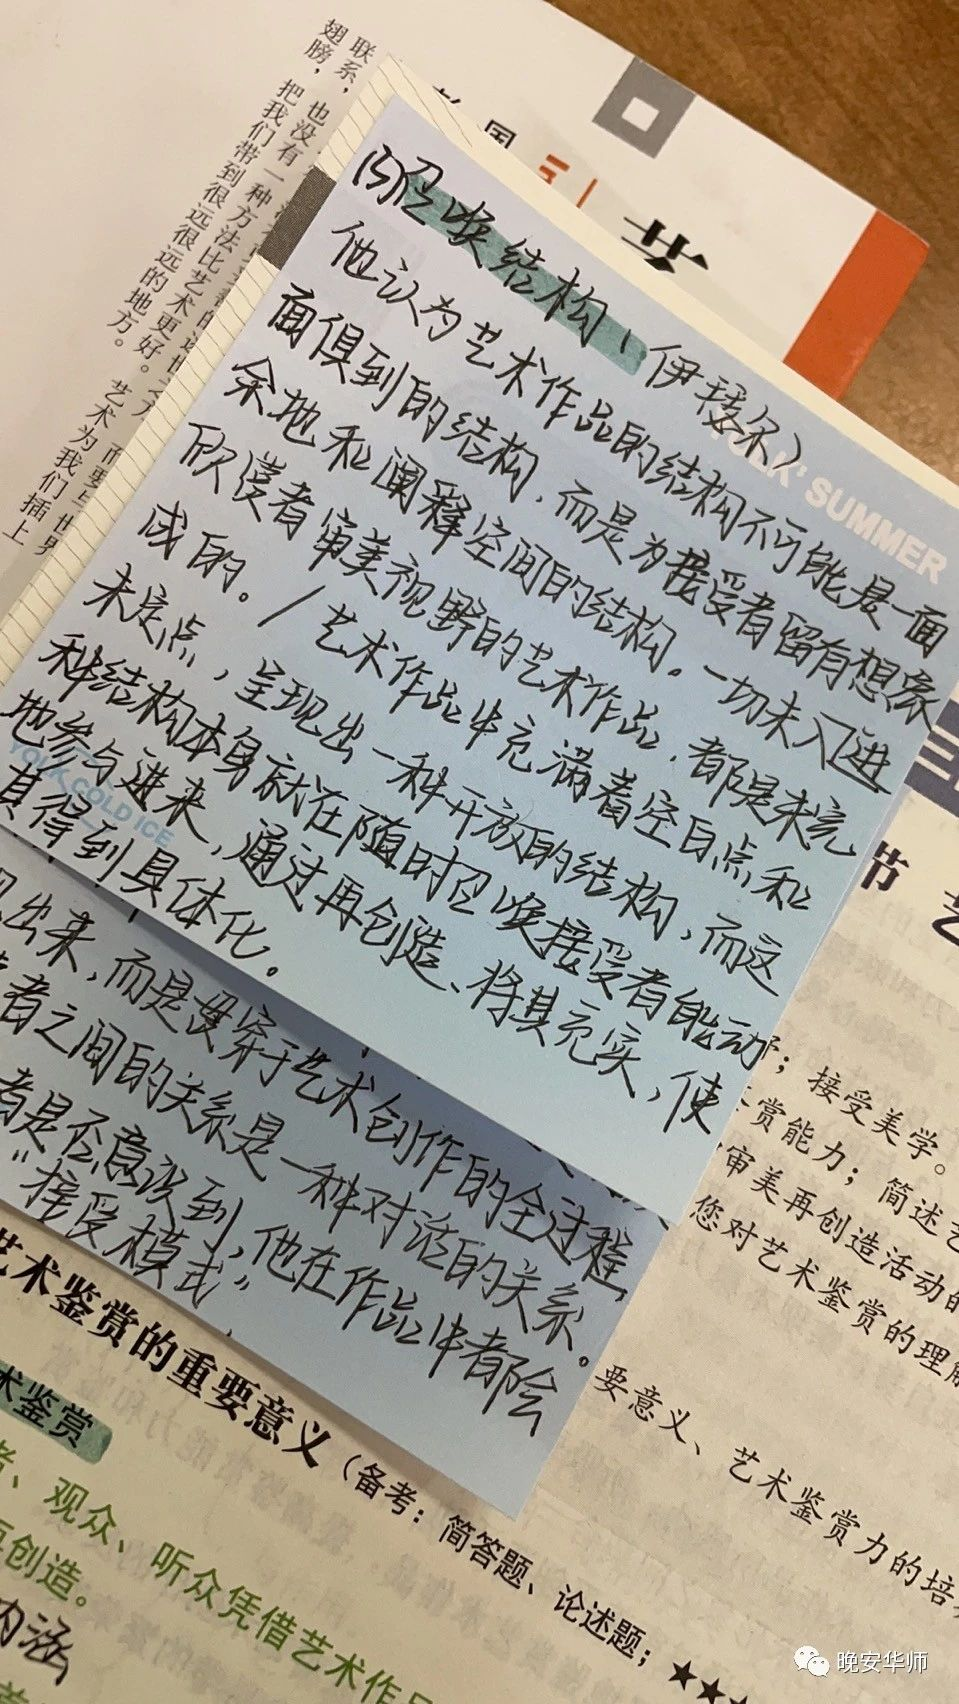 联系，也没有一种
翅膀，把我们带到很远很远的地方。
方法比艺术更好。艺术为我们插上
国
艺
召唤结构、伊瑟尔）
他认为艺术作品的结构不可能是一面
面俱到的结构，而是为接受者留有想象
余地和阐释空间的结构。一切未入进
欣赏者审美视野的艺术作品，都是未完
成的。/艺术作品中充满着空白点和
未定点，呈现出一种开放的结构，而这
种结构本身就在随时召唤接受者能动
地参与进来，通过再创造、将其充实，使
其得到具体化。
YOLK' SUMMER
YOLK COLD ICE
出来，而是贯穿于艺术创作的全过程
者之间的关系是一种对话的关系。
者是否意识到，他在作品中都会
“接受模式”
节 艺
；接受美学。
赏能力；简述艺
审美再创造活动的
您对艺术鉴赏的理解
要意义、艺术鉴赏力的培养
艺术鉴赏的重要意义（备考：简答题、论述题；★★★
术鉴赏
者、观众、听众凭借艺术作品
再创造。
内涵
晚安华师